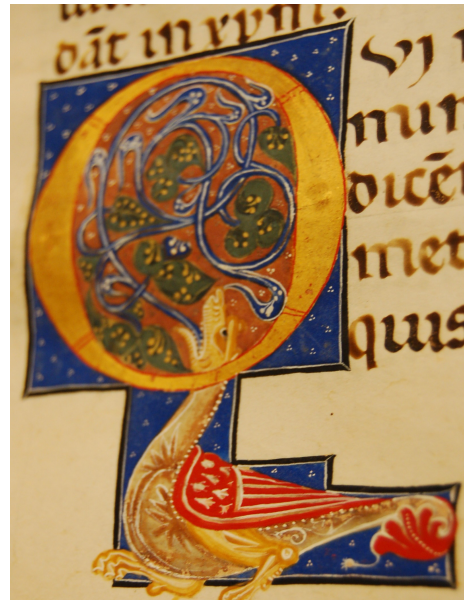 dāt in xp̄m.
QVJ
nun
dicē
met
quis